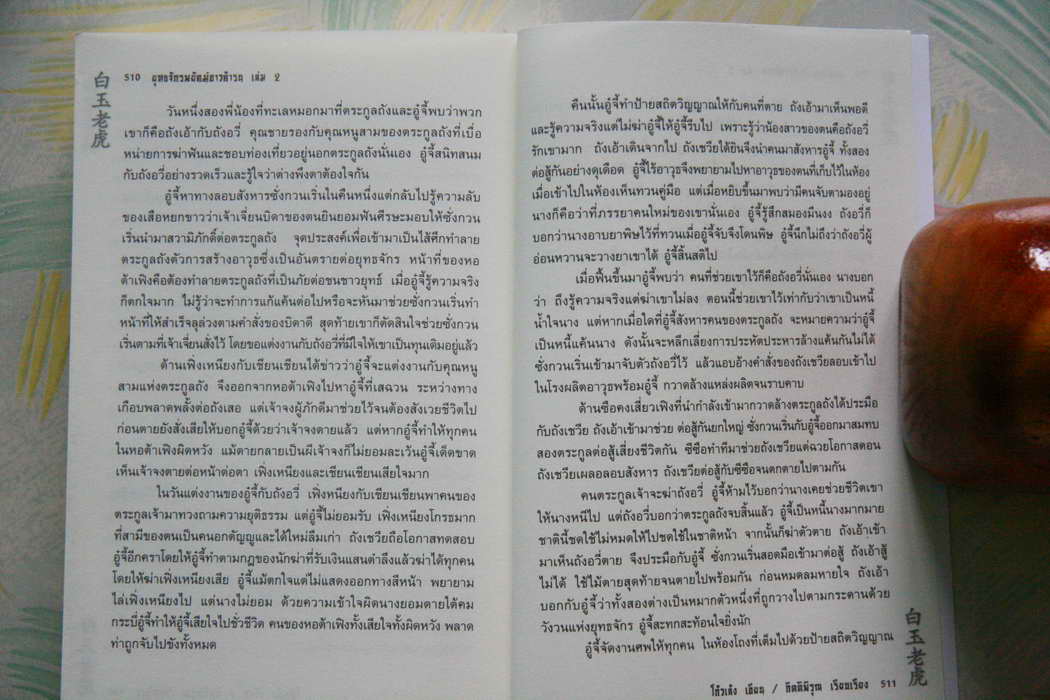 510 ยุทธจักรพยัคฆ์ขาวคำรณ เล่ม 2
白玉老虎
วันหนึ่งสองพี่น้องที่ทะเลหมอกมาที่ตระกูลถังและอู๋จี้พบว่าพวก
เขาก็คือถังเอ้ากับถังอวี่ คุณชายรองกับคุณหนูสามของตระกูลถังที่เบื่อ
หน่ายการฆ่าฟันและชอบท่องเที่ยวอยู่นอกตระกูลถังนั่นเอง อู๋จี้สนิทสนม
กับถังอวี่อย่างรวดเร็วและรู้ใจว่าต่างพึงตาต้องใจกัน
อู๋จี้หาทางลอบสังหารซั่งกวนเริ่นในคืนหนึ่งแต่กลับไปรู้ความลับ
ของเสือหยกขาวว่าเจ้าเจี่ยนบิดาของตนยินยอมฟันศีรษะมอบให้ซั่งกวน
เริ่นนำมาสวามิภักดิ์ต่อตระกูลถัง จุดประสงค์เพื่อเข้ามาเป็นไส้ศึกทำลาย
ตระกูลถังตัวการสร้างอาวุธซึ่งเป็นอันตรายต่อยุทธจักร หน้าที่ของหอ
ต้าเฟิงคือต้องทำลายตระกูลถังที่เป็นภัยต่อชนชาวยุทธ์ เมื่ออู๋จี้รู้ความจริง
ก็ตกใจมาก ไม่รู้ว่าจะทำการแก้แค้นต่อไปหรือจะหันมาช่วยซั่งกวนเริ่นทำ
หน้าที่ให้สำเร็จลุล่วงตามคำสั่งของบิดาดี สุดท้ายเขาก็ตัดสินใจช่วยซั่งกวน
เริ่นตามที่เจ้าเจี่ยนสั่งไว้ โดยขอแต่งงานกับถังอวี่ที่มีใจให้เขาเป็นทุนเดิมอยู่แล้ว
ด้านเฟิ่งเหนียงกับเชียนเชียนได้ข่าวว่าอู๋จี้จะแต่งงานกับคุณหนู
สามแห่งตระกูลถัง จึงออกจากหอต้าเฟิงไปหาอู๋จี้ที่เสฉวน ระหว่างทาง
เกือบพลาดพลั้งต่อถังเสอ แต่เจ้าจงผู้ภักดีมาช่วยไว้จนต้องสังเวยชีวิตไป
ก่อนตายยังสั่งเสียให้บอกอู๋จี้ด้วยว่าเจ้าจงตายแล้ว แต่หากอู๋จี้ทำให้ทุกคน
ในหอต้าเฟิงผิดหวัง แม้ตายกลายเป็นผีเจ้าจงก็ไม่ยอมละเว้นอู๋จี้เด็ดขาด
เห็นเจ้าจงตายต่อหน้าต่อตา เฟิ่งเหนียงและเชียนเชียนเสียใจมาก
ในวันแต่งงานของอู๋จี้กับถังอวี่ เฟิ่งเหนียงกับเชียนเชียนพาคนของ
ตระกูลเจ้ามาทวงถามความยุติธรรม แต่อู๋จี้ไม่ยอมรับ เฟิ่งเหนียงโกรธมาก
ที่สามีของตนเป็นคนอกตัญญูและได้ใหม่ลืมเก่า ถังเชวียถือโอกาสทดสอบ
อู๋จี้อีกคราโดยให้อู๋จี้ทำตามกฎของนักฆ่าที่รับเงินแสนตำลึงแล้วฆ่าได้ทุกคน
โดยให้ฆ่าเฟิ่งเหนียงเสีย อู๋จี้แม้ตกใจแต่ไม่แสดงออกทางสีหน้า พยายาม
ไล่เฟิ่งเหนียงไป แต่นางไม่ยอม ด้วยความเข้าใจผิดนางยอมตายใต้คม
กระบี่อู๋จี้ทำให้อู๋จี้เสียใจไปชั่วชีวิต คนของหอต้าเฟิงทั้งเสียใจทั้งผิดหวัง พลาด
ท่าถูกจับไปขังทั้งหมด
คืนนั้นอู๋จี้ทำป้ายสถิตวิญญาณให้กับคนที่ตาย ถังเอ้ามาเห็นพอดี
และรู้ความจริงแต่ไม่ฆ่าอู๋จี้ให้อู๋จี้รีบไป เพราะรู้ว่าน้องสาวของตนคือถังอวี่
รักเขามาก ถังเอ้าเดินจากไป ถังเชวียได้ยินจึงนำคนมาสังหารอู๋จี้ ทั้งสอง
ต่อสู้กันอย่างดุเดือด อู๋จี้ไร้อาวุธจึงพยายามไปหาอาวุธของตนที่เก็บไว้ในห้อง
เมื่อเข้าไปในห้องเห็นทวนคู่มือ แต่เมื่อหยิบขึ้นมาพบว่ามีคนจับตามองอยู่
นางก็คือว่าที่ภรรยาคนใหม่ของเขานั่นเอง อู๋จี้รู้สึกสมองมึนงง ถังอวี่ก็
บอกว่านางอาบยาพิษไว้ที่ทวนเมื่ออู๋จี้จับจึงโดนพิษ อู๋จี้นึกไม่ถึงว่าถังอวี่ผู้
อ่อนหวานจะวางยาเขาได้ อู๋จี้สิ้นสติไป
เมื่อฟื้นขึ้นมาอู๋จี้พบว่า คนที่ช่วยเขาไว้ก็คือถังอวี่นั่นเอง นางบอก
ว่า ถึงรู้ความจริงแต่ฆ่าเขาไม่ลง ตอนนี้ช่วยเขาไว้เท่ากับว่าเขาเป็นหนี้
น้ำใจนาง แต่หากเมื่อใดที่อู๋จี้สังหารคนของตระกูลถัง จะหมายความว่าอู๋จี้
เป็นหนี้แค้นนาง ดังนั้นจะหลีกเลี่ยงการประหัตประหารล้างแค้นกันไม่ได้
ซั่งกวนเริ่นเข้ามาจับตัวถังอวี่ไว้ แล้วแอบอ้างคำสั่งของถังเชวียลอบเข้าไป
ในโรงผลิตอาวุธพร้อมอู๋จี้ กวาดล้างแหล่งผลิตจนราบคาบ
ด้านซือคงเสี่ยวเฟิงที่นำกำลังเข้ามากวาดล้างตระกูลถังได้ประมือ
กับถังเชวีย ถังเอ้าเข้ามาช่วย ต่อสู้กันยกใหญ่ ซั่งกวนเริ่นกับอู๋จี้ออกมาสมทบ
สองตระกูลต่อสู้เสี่ยงชีวิตกัน ซีซือทำทีมาช่วยถังเชวียแต่ฉวยโอกาสตอน
ถังเชวียเผลอลอบสังหาร ถังเชวียต่อสู้กับซีซือจนตกตายไปตามกัน
คนตระกูลเจ้าจะฆ่าถังอวี่ อู๋จี้ห้ามไว้บอกว่านางเคยช่วยชีวิตเขา
ให้นางหนีไป แต่ถังอวี่บอกว่าตระกูลถังจบสิ้นแล้ว อู๋จี้เป็นหนี้นางมากมาย
ชาตินี้ชดใช้ไม่หมดให้ไปชดใช้ในชาติหน้า จากนั้นก็ฆ่าตัวตาย ถังเอ้าเข้า
มาเห็นถังอวี่ตาย จึงประมือกับอู๋จี้ ซั่งกวนเริ่นสอดมือเข้ามาต่อสู้ ถังเอ้าสู้
ไม่ได้ ใช้ไม้ตายสุดท้ายจนตายไปพร้อมกัน ก่อนหมดลมหายใจ ถังเอ้า
บอกกับอู๋จี้ว่าทั้งสองต่างเป็นหมากตัวหนึ่งที่ถูกวางไปตามกระดานด้วย
วังวนแห่งยุทธจักร อู๋จี้สะทกสะท้อนใจยิ่งนัก
อู๋จี้จัดงานศพให้ทุกคน ในห้องโถงที่เต็มไปด้วยป้ายสถิตวิญญาณ
白玉老虎
โก้วเล้ง เขียน / กิตติพิรุณ เรียบเรียง 511